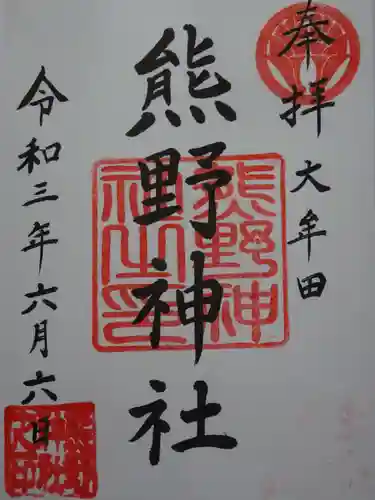 奉拝
大牟田
熊野神社
熊野神社之印
令和三年六月六日